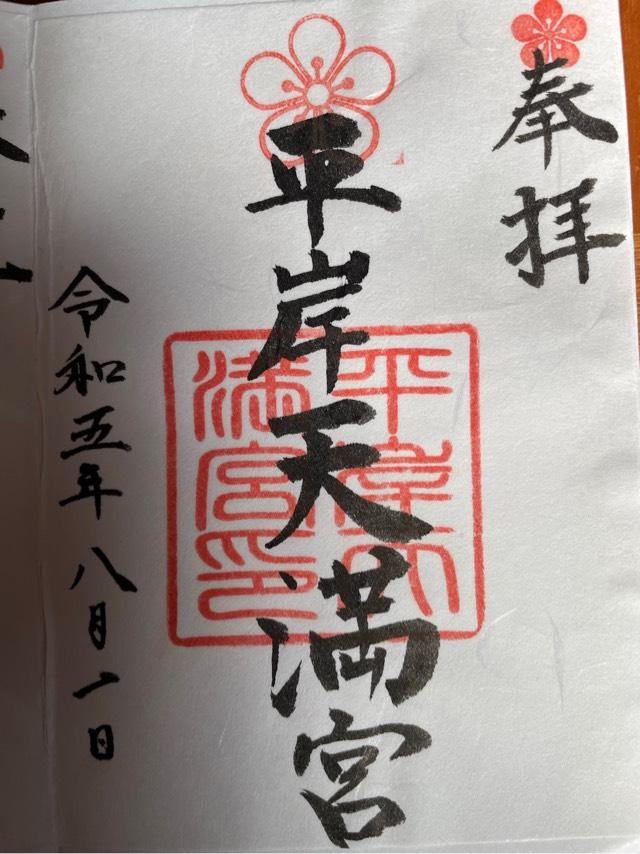 奉拝
平岸天満宮
平岸天
満宮印
令和五年八月一日